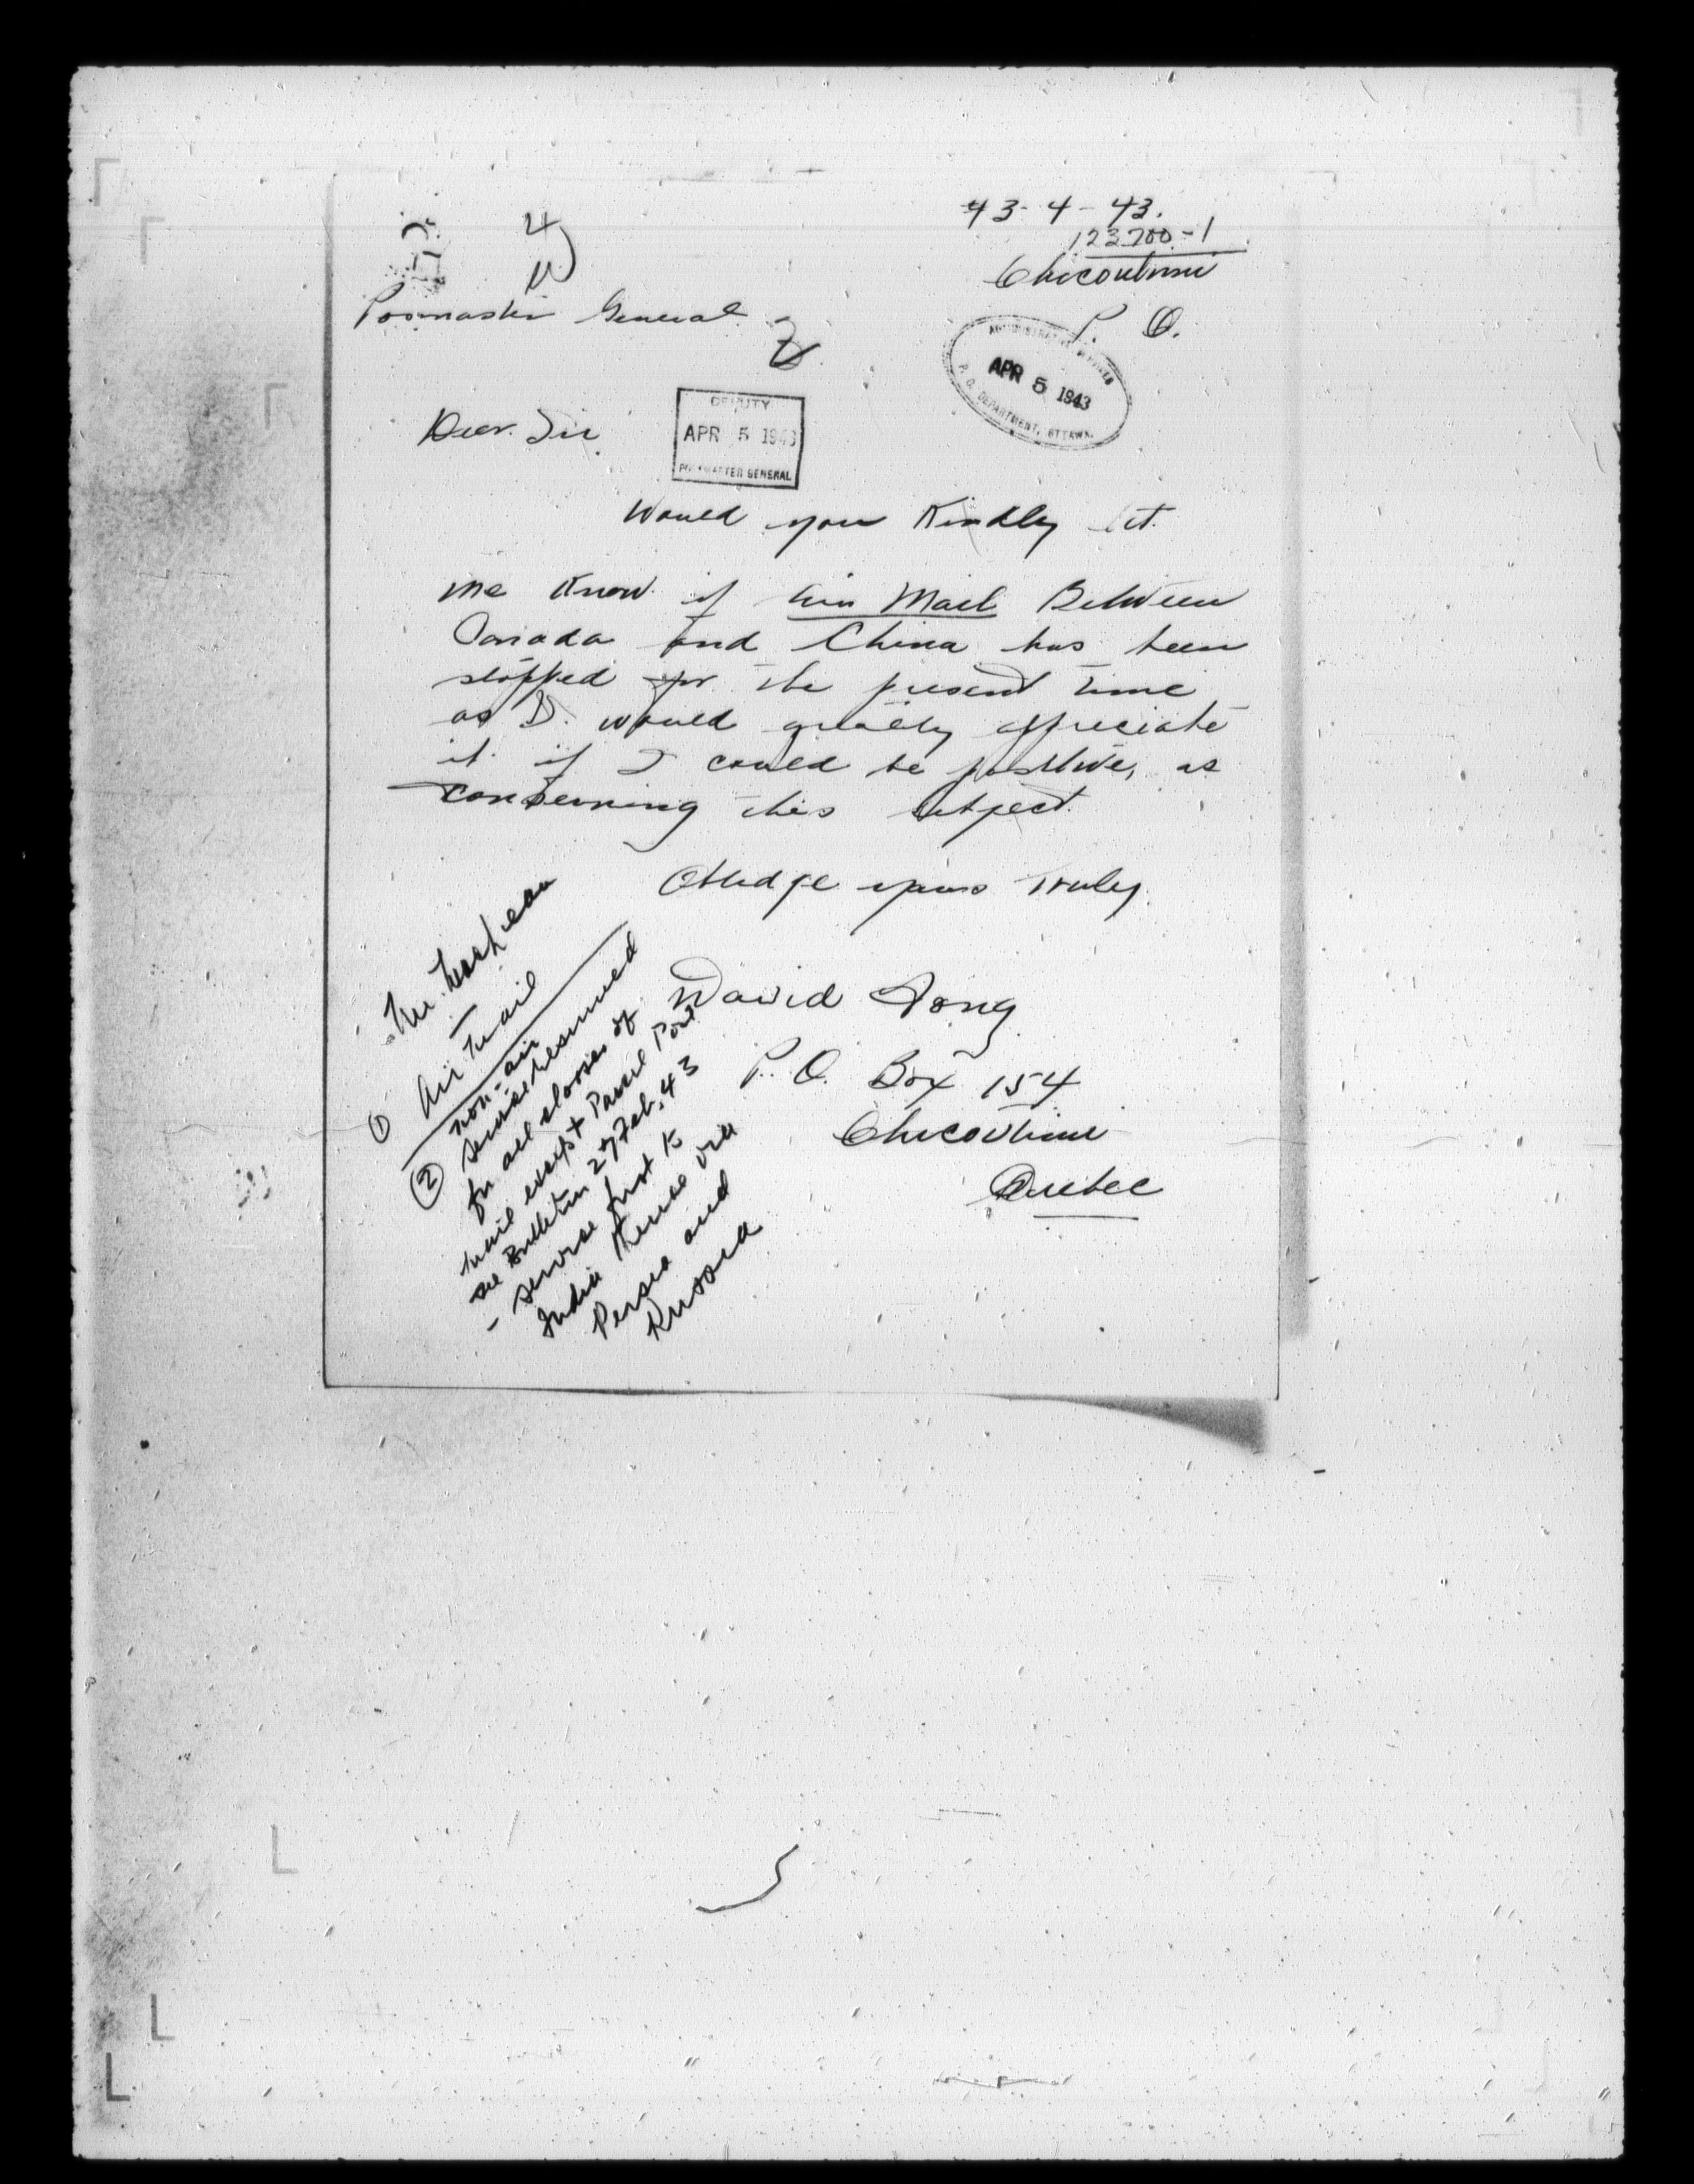 43-4-43.
123700-1
Chicoutimi
P. Q.
4
Posmaster General
ADMINISTRATIVE SERVICES
APR 5 1943
P. O. DEPARTMENT, OTTAWA
DEPUTY
APR 5 1943
POSTMASTER GENERAL
Dear. Sir.
Would you Kindly let
me Know if Air Mail Between
Canada and China has been
stopped for the present time
as I. would greatly appreciate
it if I could be positive, as
concerning this subject.
Obledge yours Truly
David Fong
P. O. Box 154
Chicoutimi
Quebec
Mr.
① Air Mail
non-air
② service resumed
for all classes of
mail except Parcel Post
see Bulletin 27 Feb. 43
- service first to
India thence via
Persia and
Russia